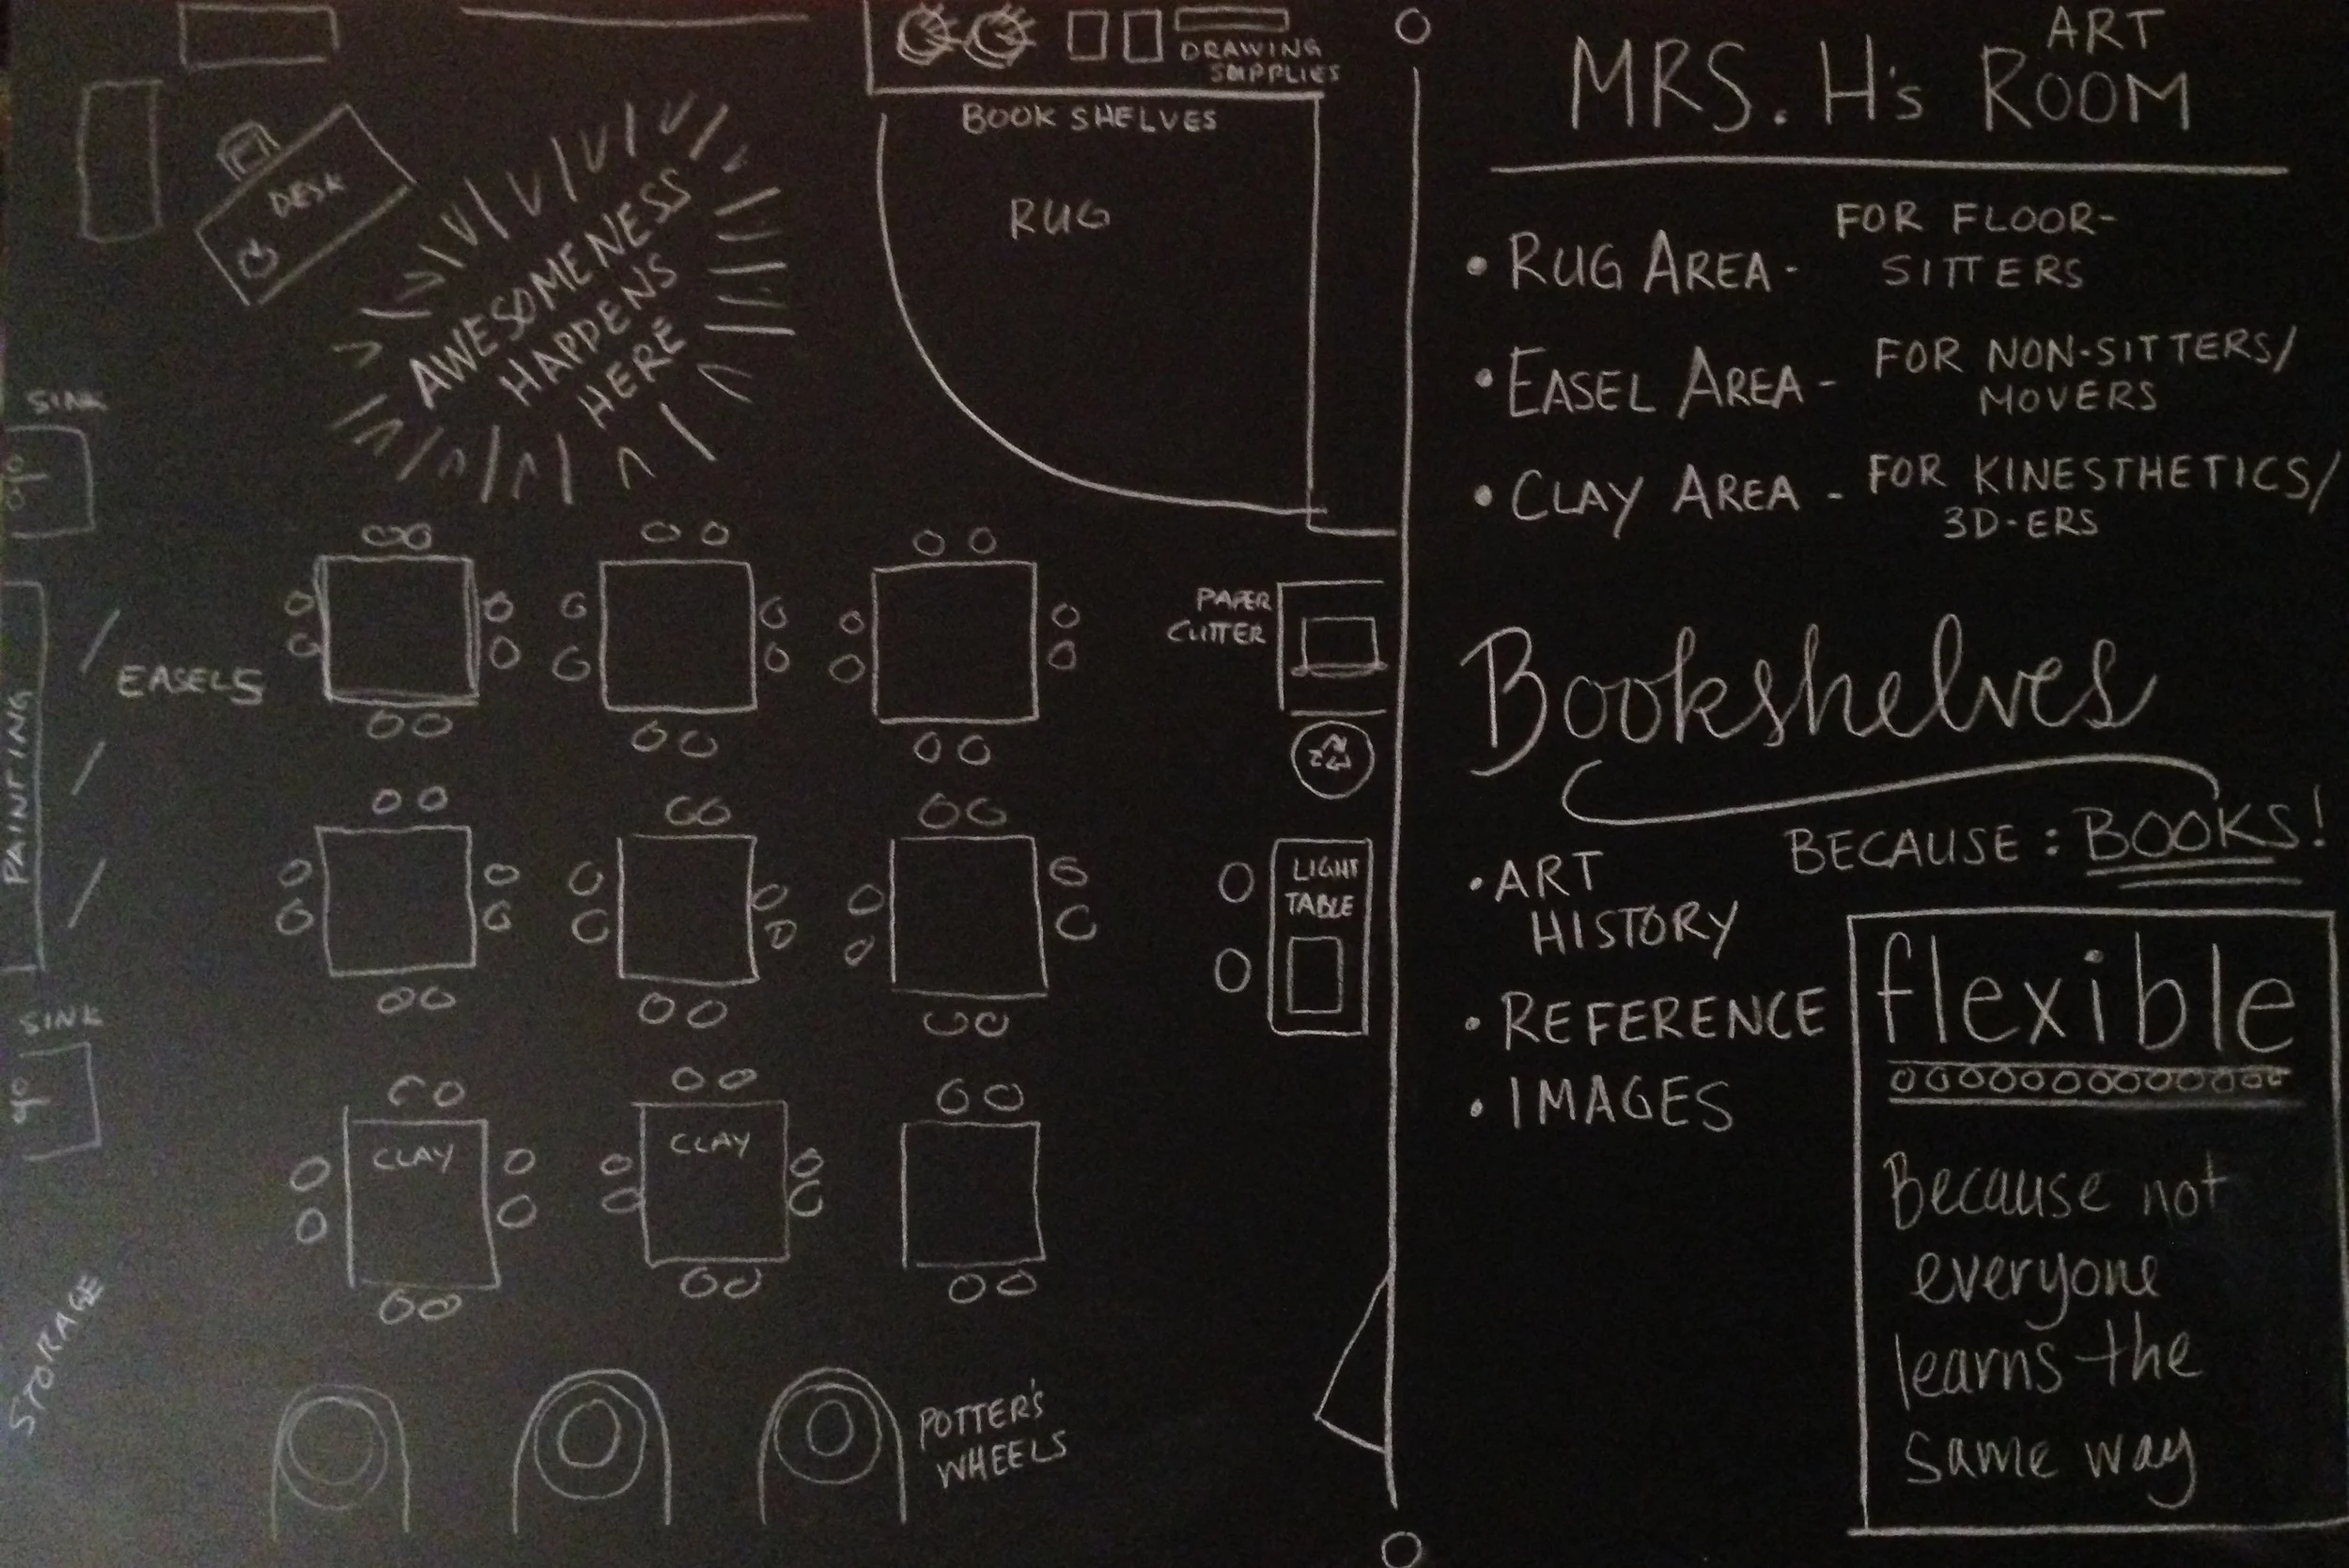 DRAWING
SUPPLIES
BOOK SHELVES
RUG
DESK
AWESOMENESS
HAPPENS
HERE
SINK
EASELS
PAINTING
SINK
STORAGE
PAPER
CUTTER
LIGHT
TABLE
CLAY
CLAY
POTTER'S
WHEELS
ART
MRS. H's ROOM
• RUG AREA - FOR FLOOR-
SITTERS
• EASEL AREA - FOR NON-SITTERS/
MOVERS
• CLAY AREA - FOR KINESTHETICS/
3D-ERS
Bookshelves
BECAUSE: BOOKS!
• ART
HISTORY
• REFERENCE
• IMAGES
flexible
Because not
everyone
learns the
same way